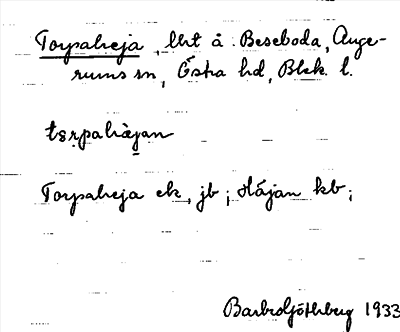 Torpaheja, lht å Beseboda, Auge-
rums sn, Östra hd, Blek. l.
tɛrpahàjan
Torpaheja ek, jb; Häjan kb;
Barbro Göthberg 1933